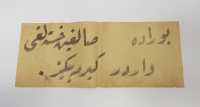 بوراده صالغين خستلغى
واردر كيرميكز.